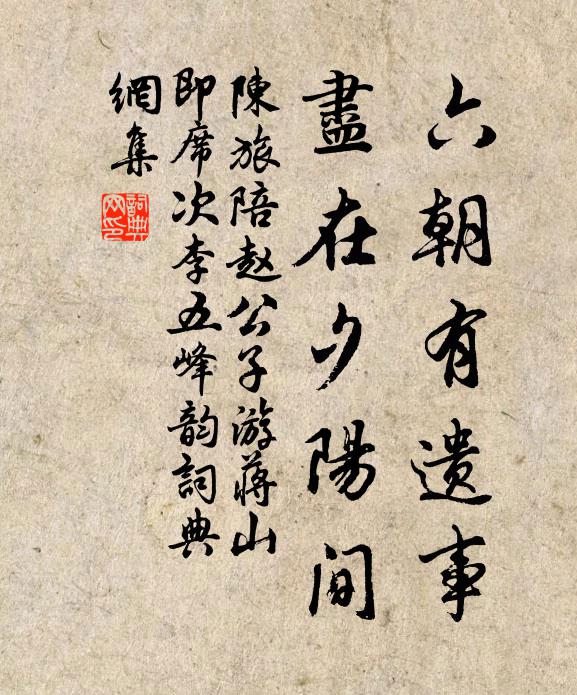 六朝有遗事
盡在夕陽间
陳旅陪赵公子游蒋山
即席次李五峰韵詞典
網集
詞典
网印